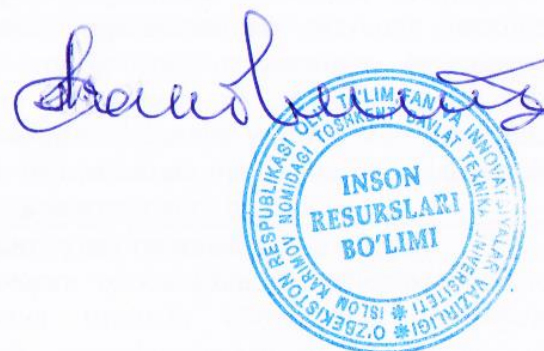 O'ZBEKISTON RESPUBLIKASI OLIY TA'LIM, FAN VA INNOVATSIYALAR VAZIRLIGI
ISLOM KARIMOV NOMIDAGI TOSHKENT DAVLAT TEXNIKA UNIVERSITETI
INSON
RESURSLARI
BO'LIMI